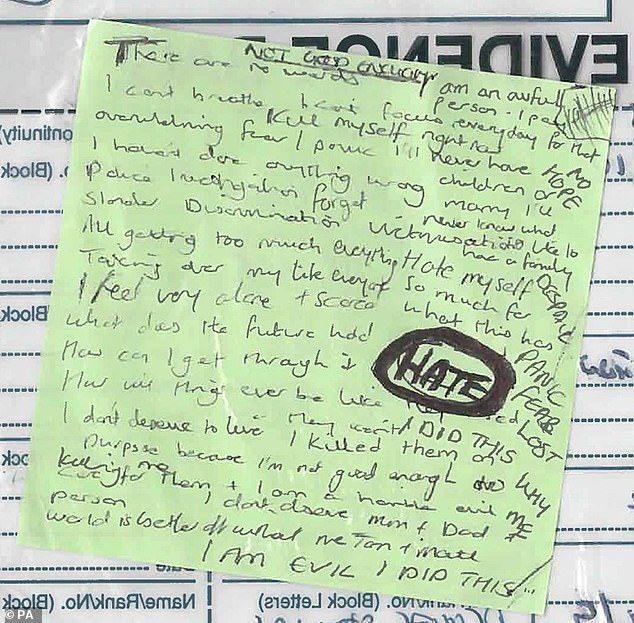 EVIDENCE
NOT GOOD ENOUGH
There are no words
I am an awful person - I pay everyday for that
I can't breathe I can't focus
Kill myself right now
overwhelming fear / panic
I'll never have children or marry I'll never know what it's like to have a family
NO HOPE
I haven't done anything wrong
Police investigation forget
Slander Discrimination Victimisation
All getting too much everything
Taking over my life everyone
Hate myself so much for what this has
DESPAIR
PANIC
FEAR
LOST
I feel very alone + scared
What does the future hold
How can I get through it
HATE
How will things ever be like they used
I DID THIS
WHY ME
I don't deserve to live
I killed them on
purpose because I'm not good enough to
care for them + I am a horrible evil
person I don't deserve mum + Dad
world is better off without me
I AM EVIL I DID THIS
Continuity)
(Block)
(Block
Date
Name/Rank/No. (Block Letters)
Name/Rank/No. (Block
© PA